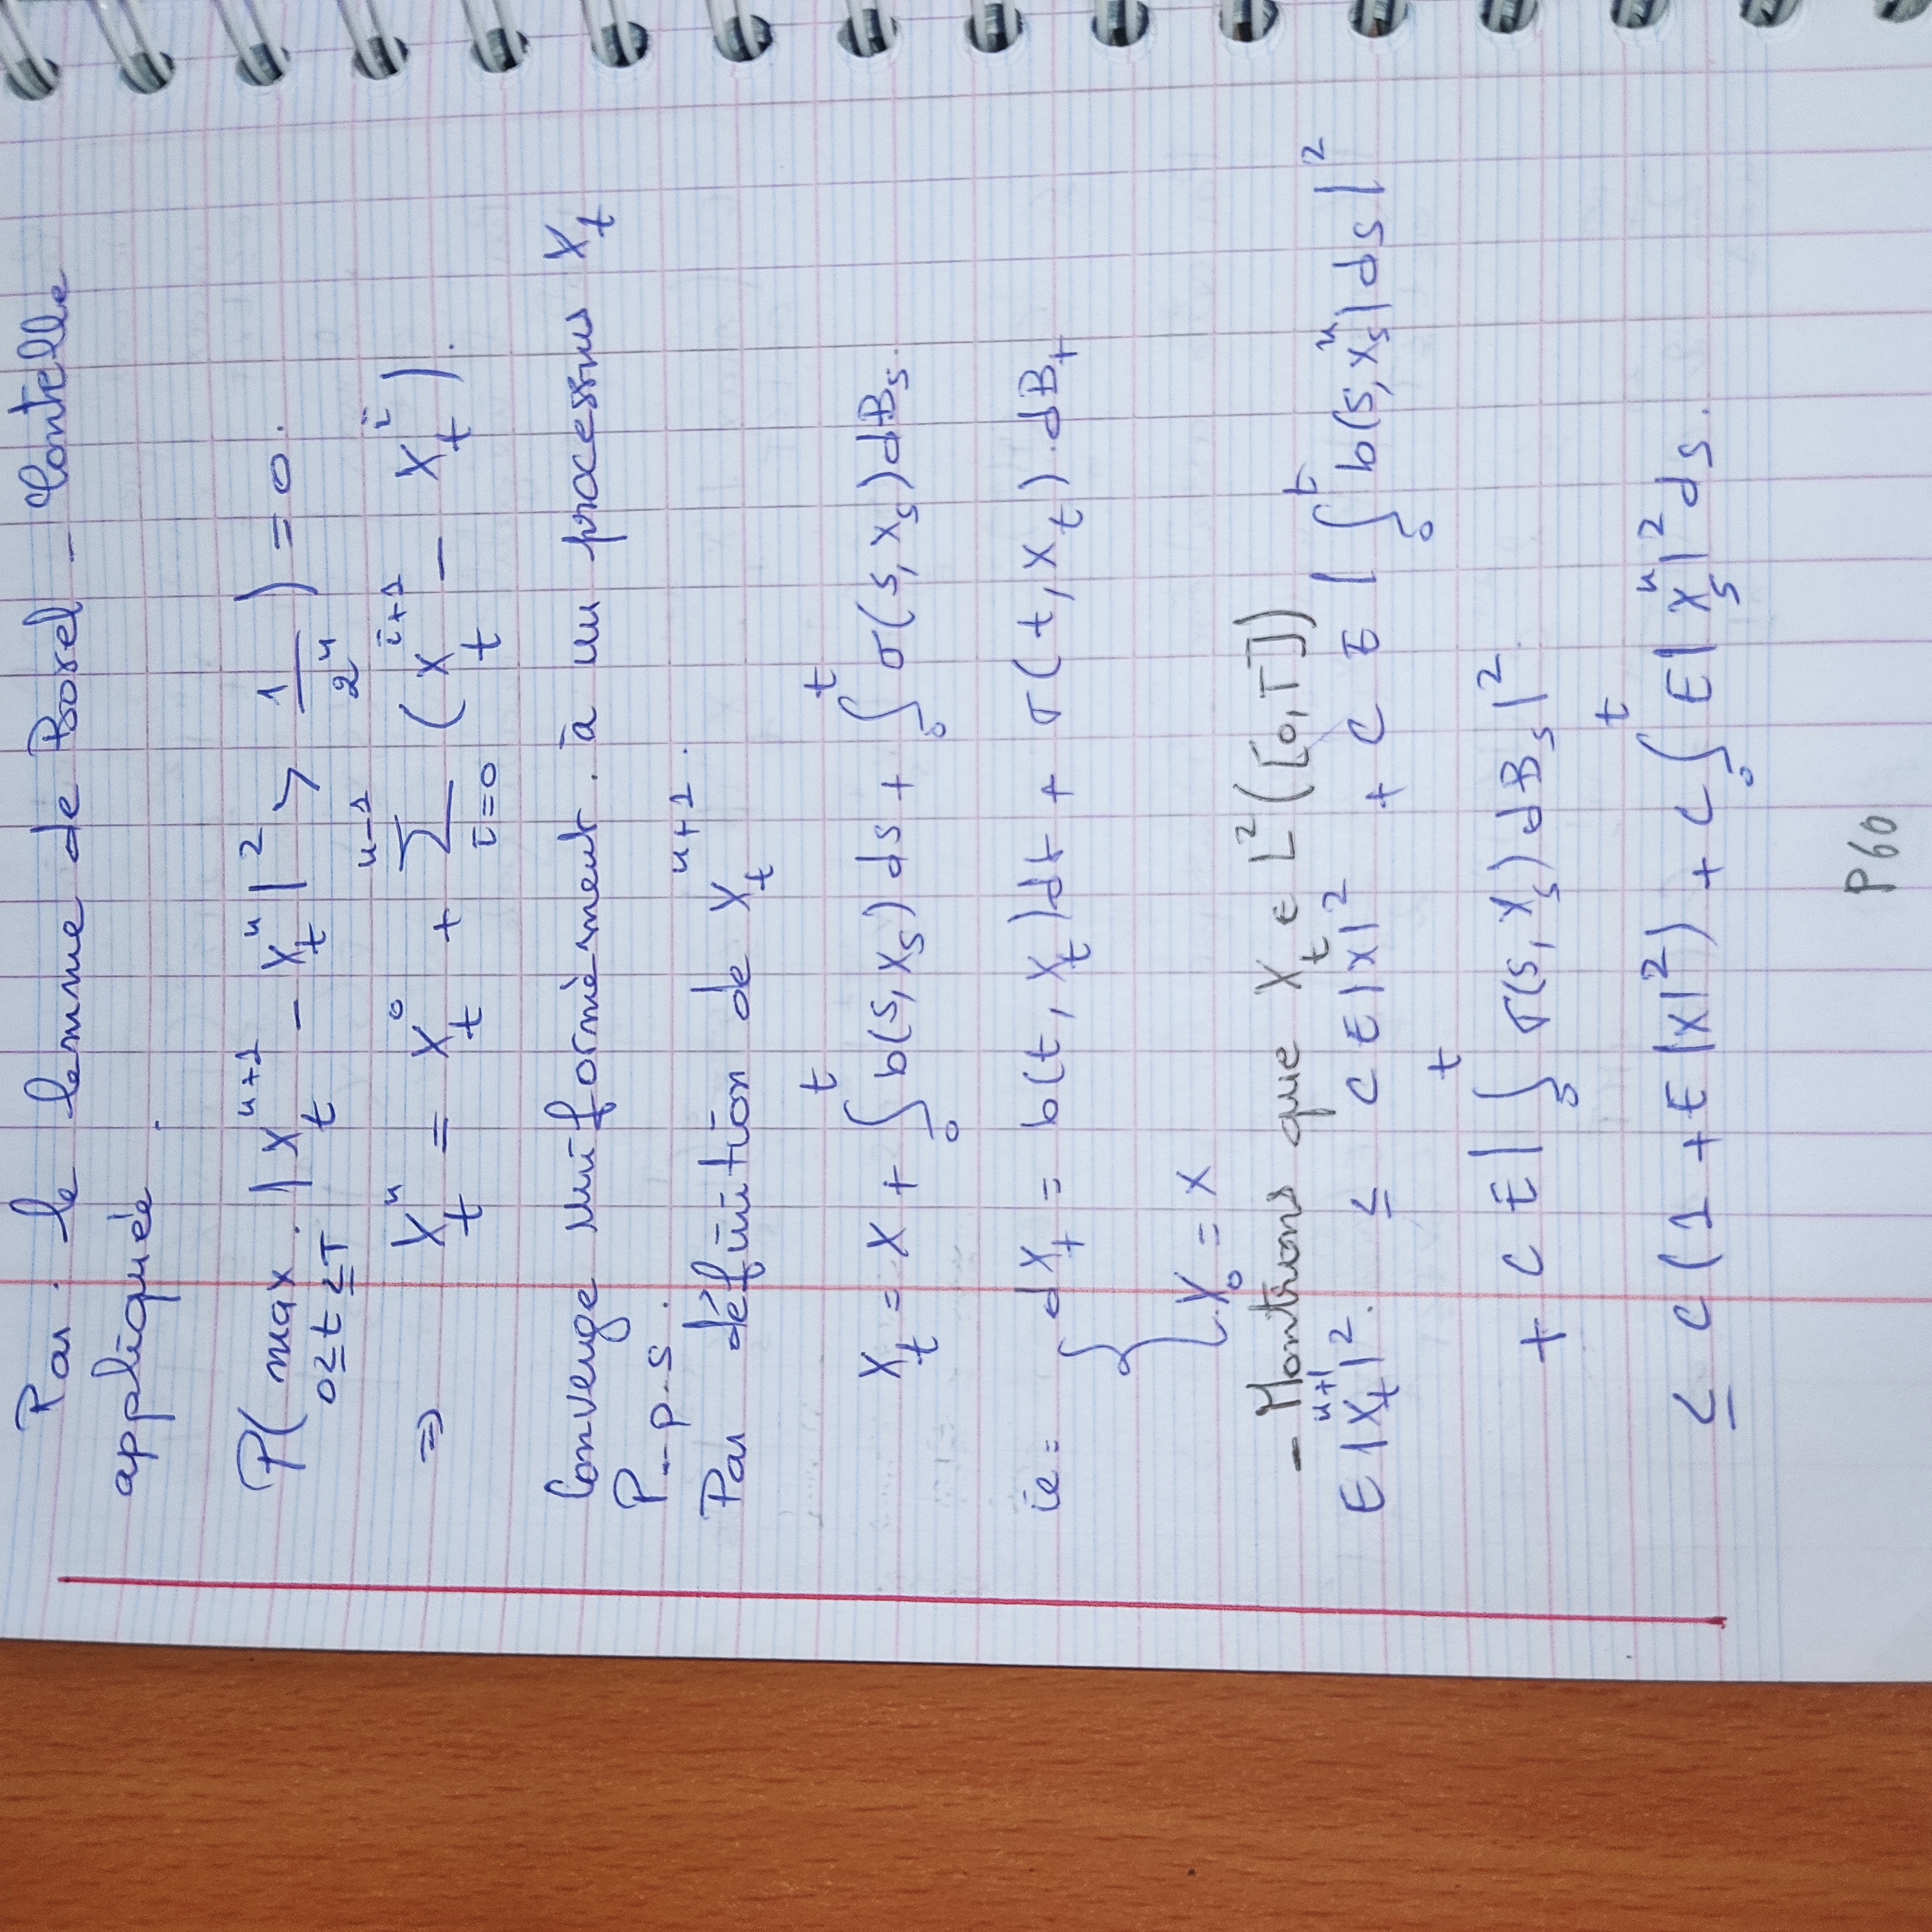 Par le lemme de Borel - Contelle
appliquée.
P( max |X_t^{n+1} - X_t^n|^2 > 1/2^n ) = 0.
0≤t≤T
⇒ X_t^n = X_t^0 + ∑_{i=0}^{n-1} (X_t^{i+1} - X_t^i).
Converge uniformèment à un processus X_t
P-p.s.
Par définition de X_t^{n+1}.
X_t = X + ∫_0^t b(s, X_s) ds + ∫_0^t σ(s, X_s) dB_s.
ie: { dX_t = b(t, X_t) dt + σ(t, X_t) . dB_t
X_0 = X
- Montrons que X_t ∈ L^2([0,T])
E |X_t^{n+1}|^2 ≤ C E|X|^2 + C E | ∫_0^t b(s, X_s^n) ds |^2
+ C E | ∫_0^t σ(s, X_s) dB_s |^2
≤ C (1 + E |X|^2) + C ∫_0^t E | X_s^n |^2 ds.
P60